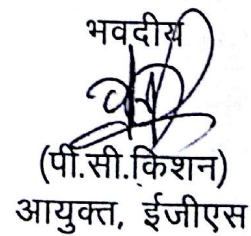 भवदीय
(पी.सी.किशन)
आयुक्त, ईजीएस